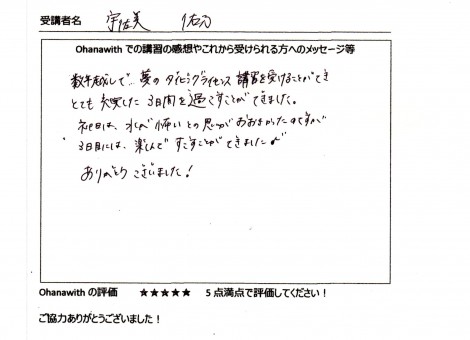 受講者名 宇佐美 佑乃
Ohanawith での講習の感想やこれから受けられる方へのメッセージ等
数年越しで 夢の ダイビングライセンス 講習を受けることができ
とても 充実した 3日間を過ごすことができました。
初日は、水が怖いとの思いがおおきかったのですが
3日目には、楽しんで すごすことができました
ありがとう ございました!
Ohanawith の評価 ★★★★★ 5 点満点で評価してください!
ご協力ありがとうございました!